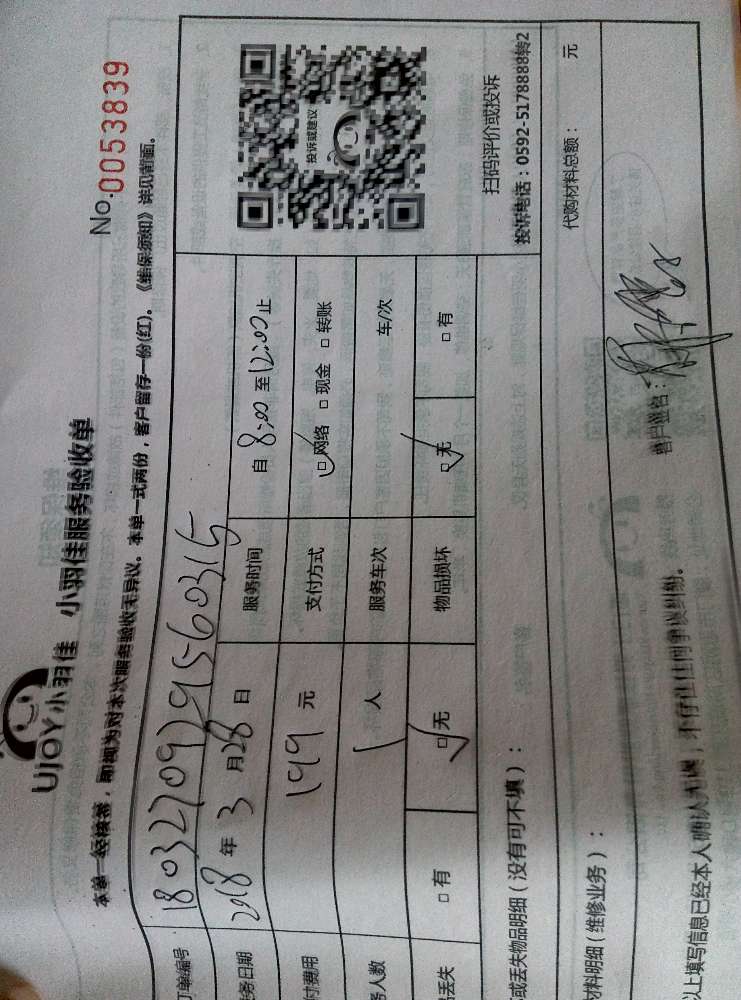 UJOY小羽佳 小羽佳服务验收单
No.0053839
本单一经核签，即视为对本次服务验收无异议。本单一式两份，客户留存一份(红)。《维保须知》详见背面。
订单编号 1803270929560315
务日期 2018 年 3 月 28 日 服务时间 自 8:00 至 12:00 止
付费用 199 元 支付方式 □网络 □现金 □转账
务人数 1 人 服务车次 车/次
品丢失 □有 □无 物品损坏 □无 □有
投诉或建议
扫码评价或投诉
投诉电话：0592-5178888转2
或丢失物品明细（没有可不填）：
材料明细（维修业务）： 代购材料总额： 元
以上填写信息已经本人确认无误，不存在任何争议纠纷。 客户签名：